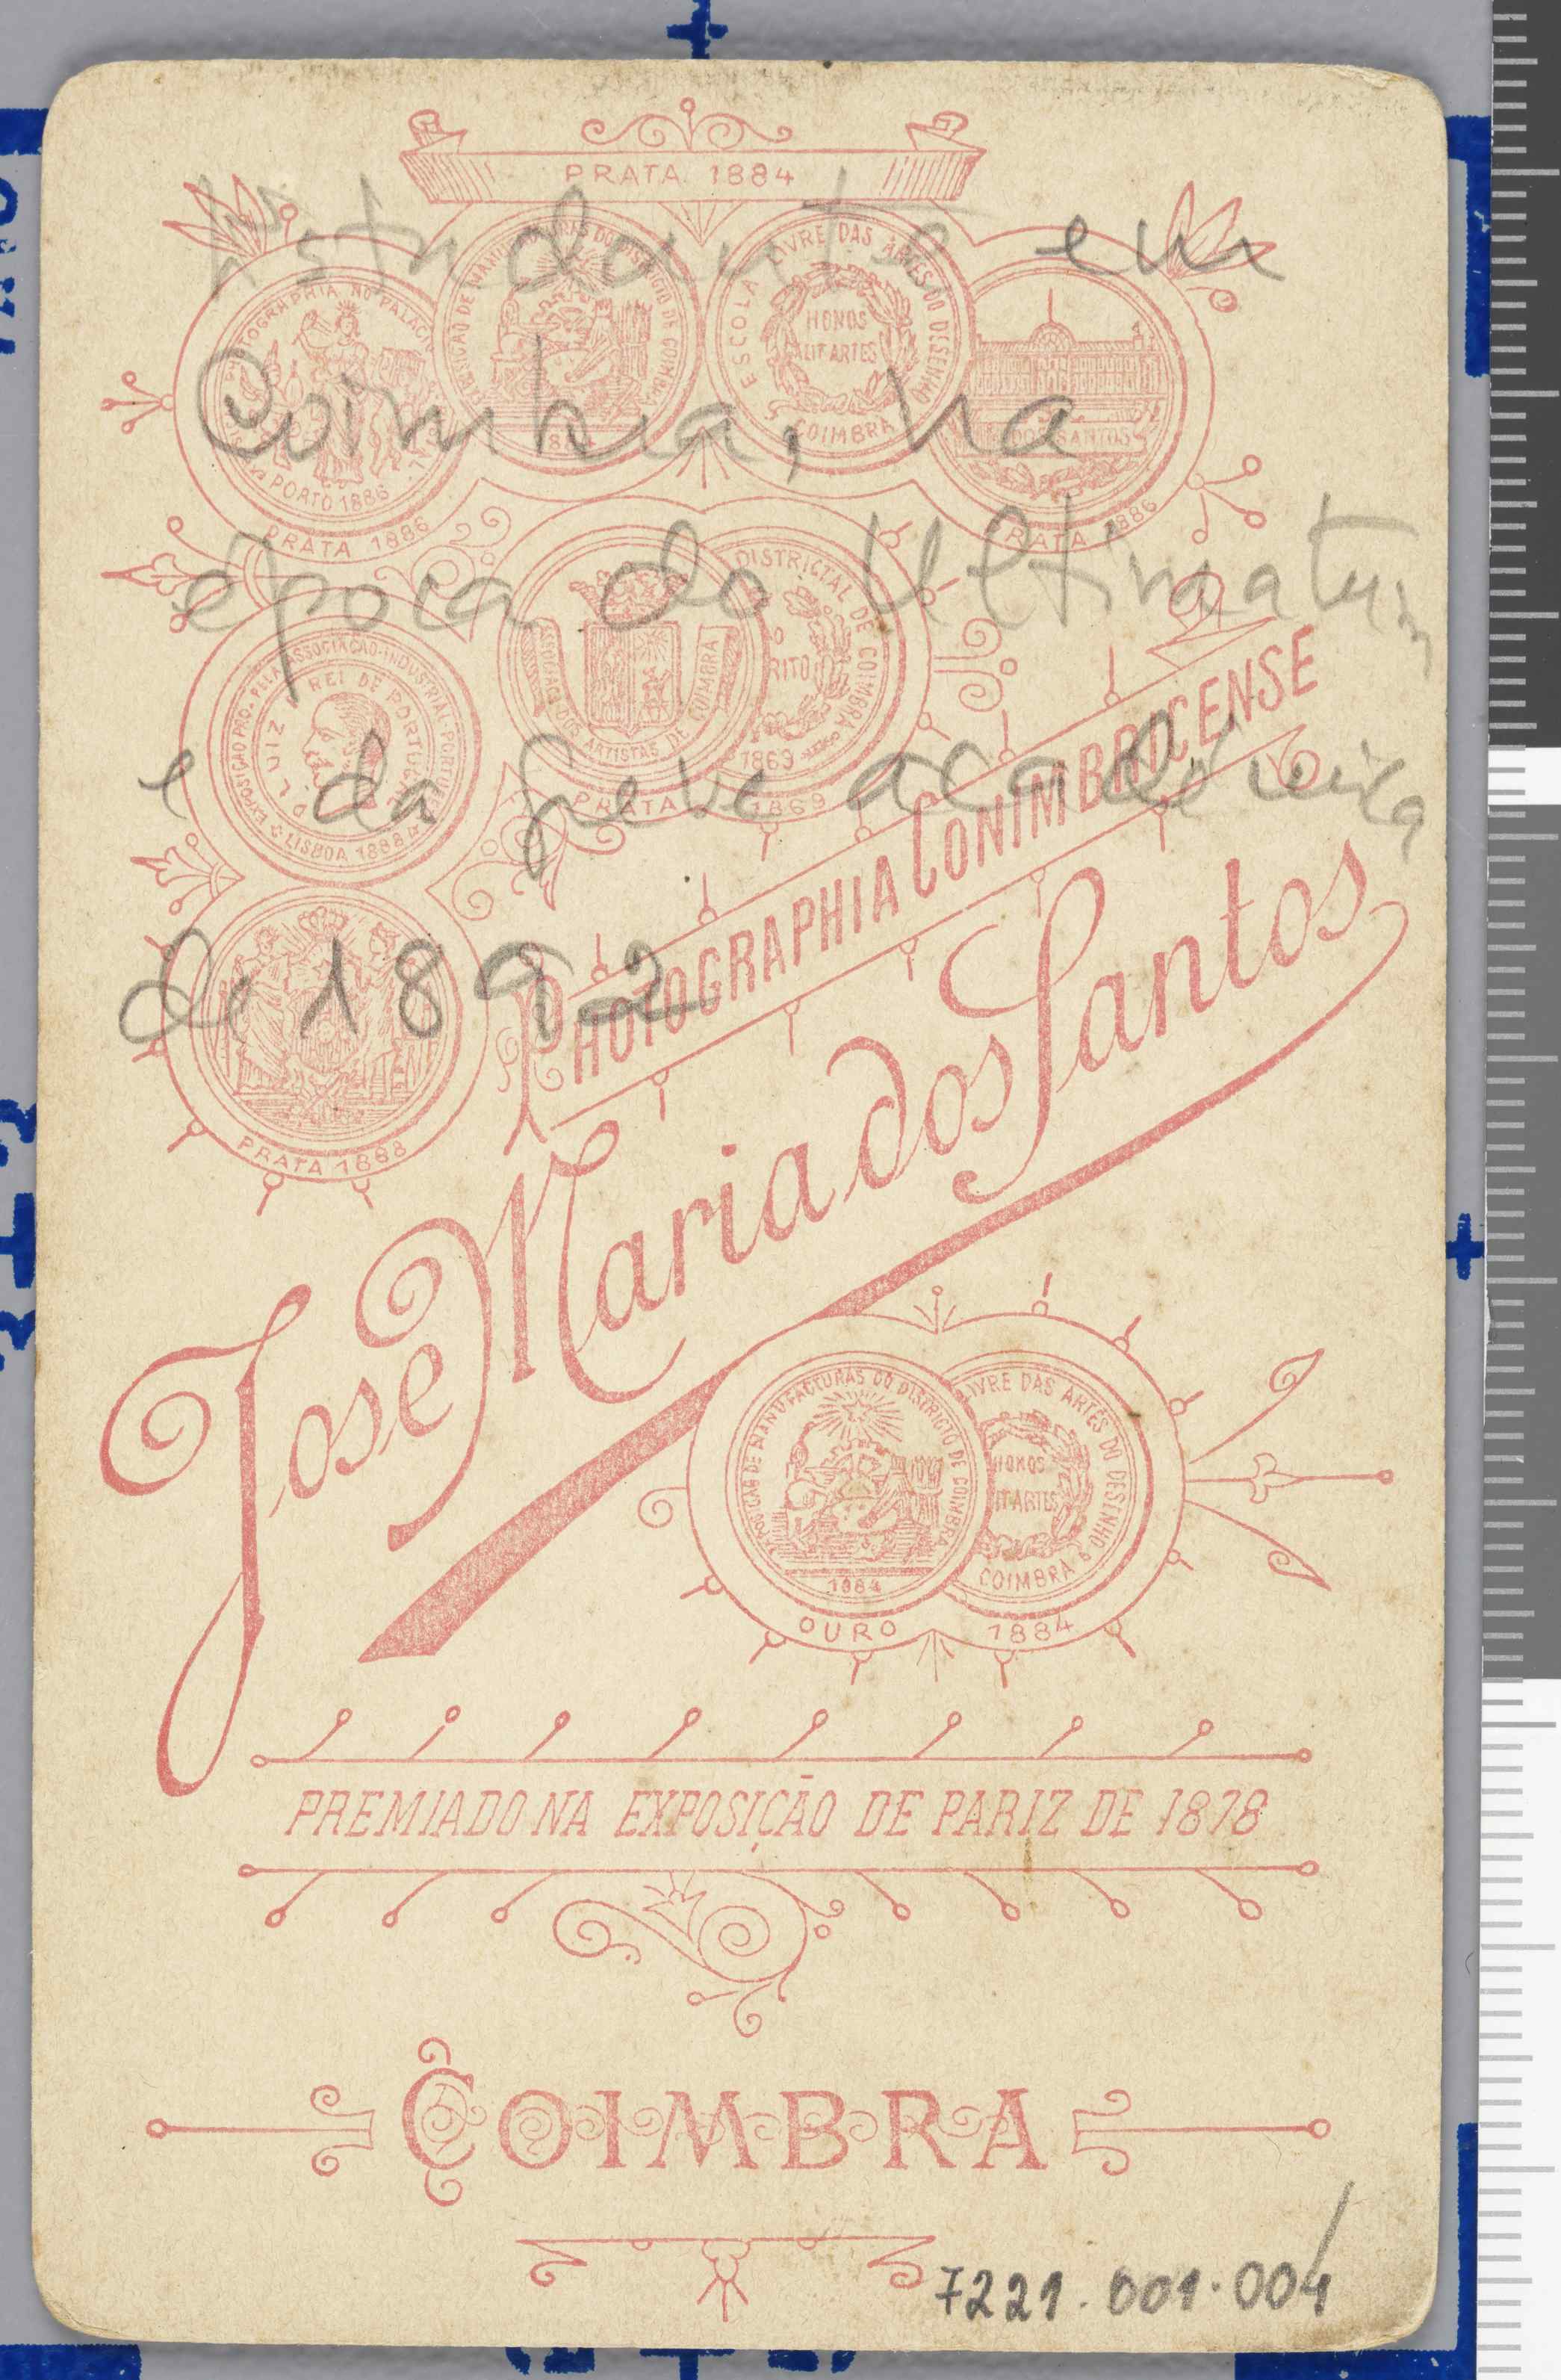 PRATA 1884
Estudante em
PHOTOGRAPHIA NO PALACIO
PORTO 1886
PRATA 1886
EXPOSIÇÃO DE MANUFACTURAS DO DISTRICTO DE COIMBRA
1884
ESCOLA LIVRE DAS ARTES DO DESENHO
HONOS
ALIT ARTES
COIMBRA
DOS SANTOS
PRATA 1886
Coimbra, na
epoca do Ultimatum
ASSOCIAÇÃO DOS ARTISTAS DE COIMBRA
DISTRICTAL DE COIMBRA
1869
PRATA 1869
EXPOSIÇÃO PRO. PELA ASSOCIAÇÃO-INDUSTRIAL-PORTUGUEZA
D. LUIZ I REI DE PORTUGAL
LISBOA 1888
e da greve académica
de 1892
PRATA 1888
PHOTOGRAPHIA CONIMBRICENSE
José Maria dos Santos
EXPOSIÇÃO DE MANUFACTURAS DO DISTRICTO DE COIMBRA
1884
LIVRE DAS ARTES DO DESENHO
HONOS
IT ARTES
COIMBRA
OURO 1884
PREMIADO NA EXPOSIÇÃO DE PARIZ DE 1878
COIMBRA
7221.001.004